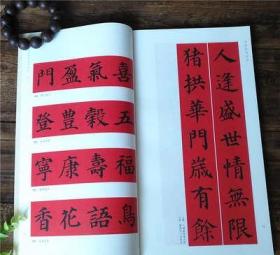 喜氣盈門
五穀豐登
福壽康寧
鳥語花香
人逢盛世情無限
猪拱華門歲有餘